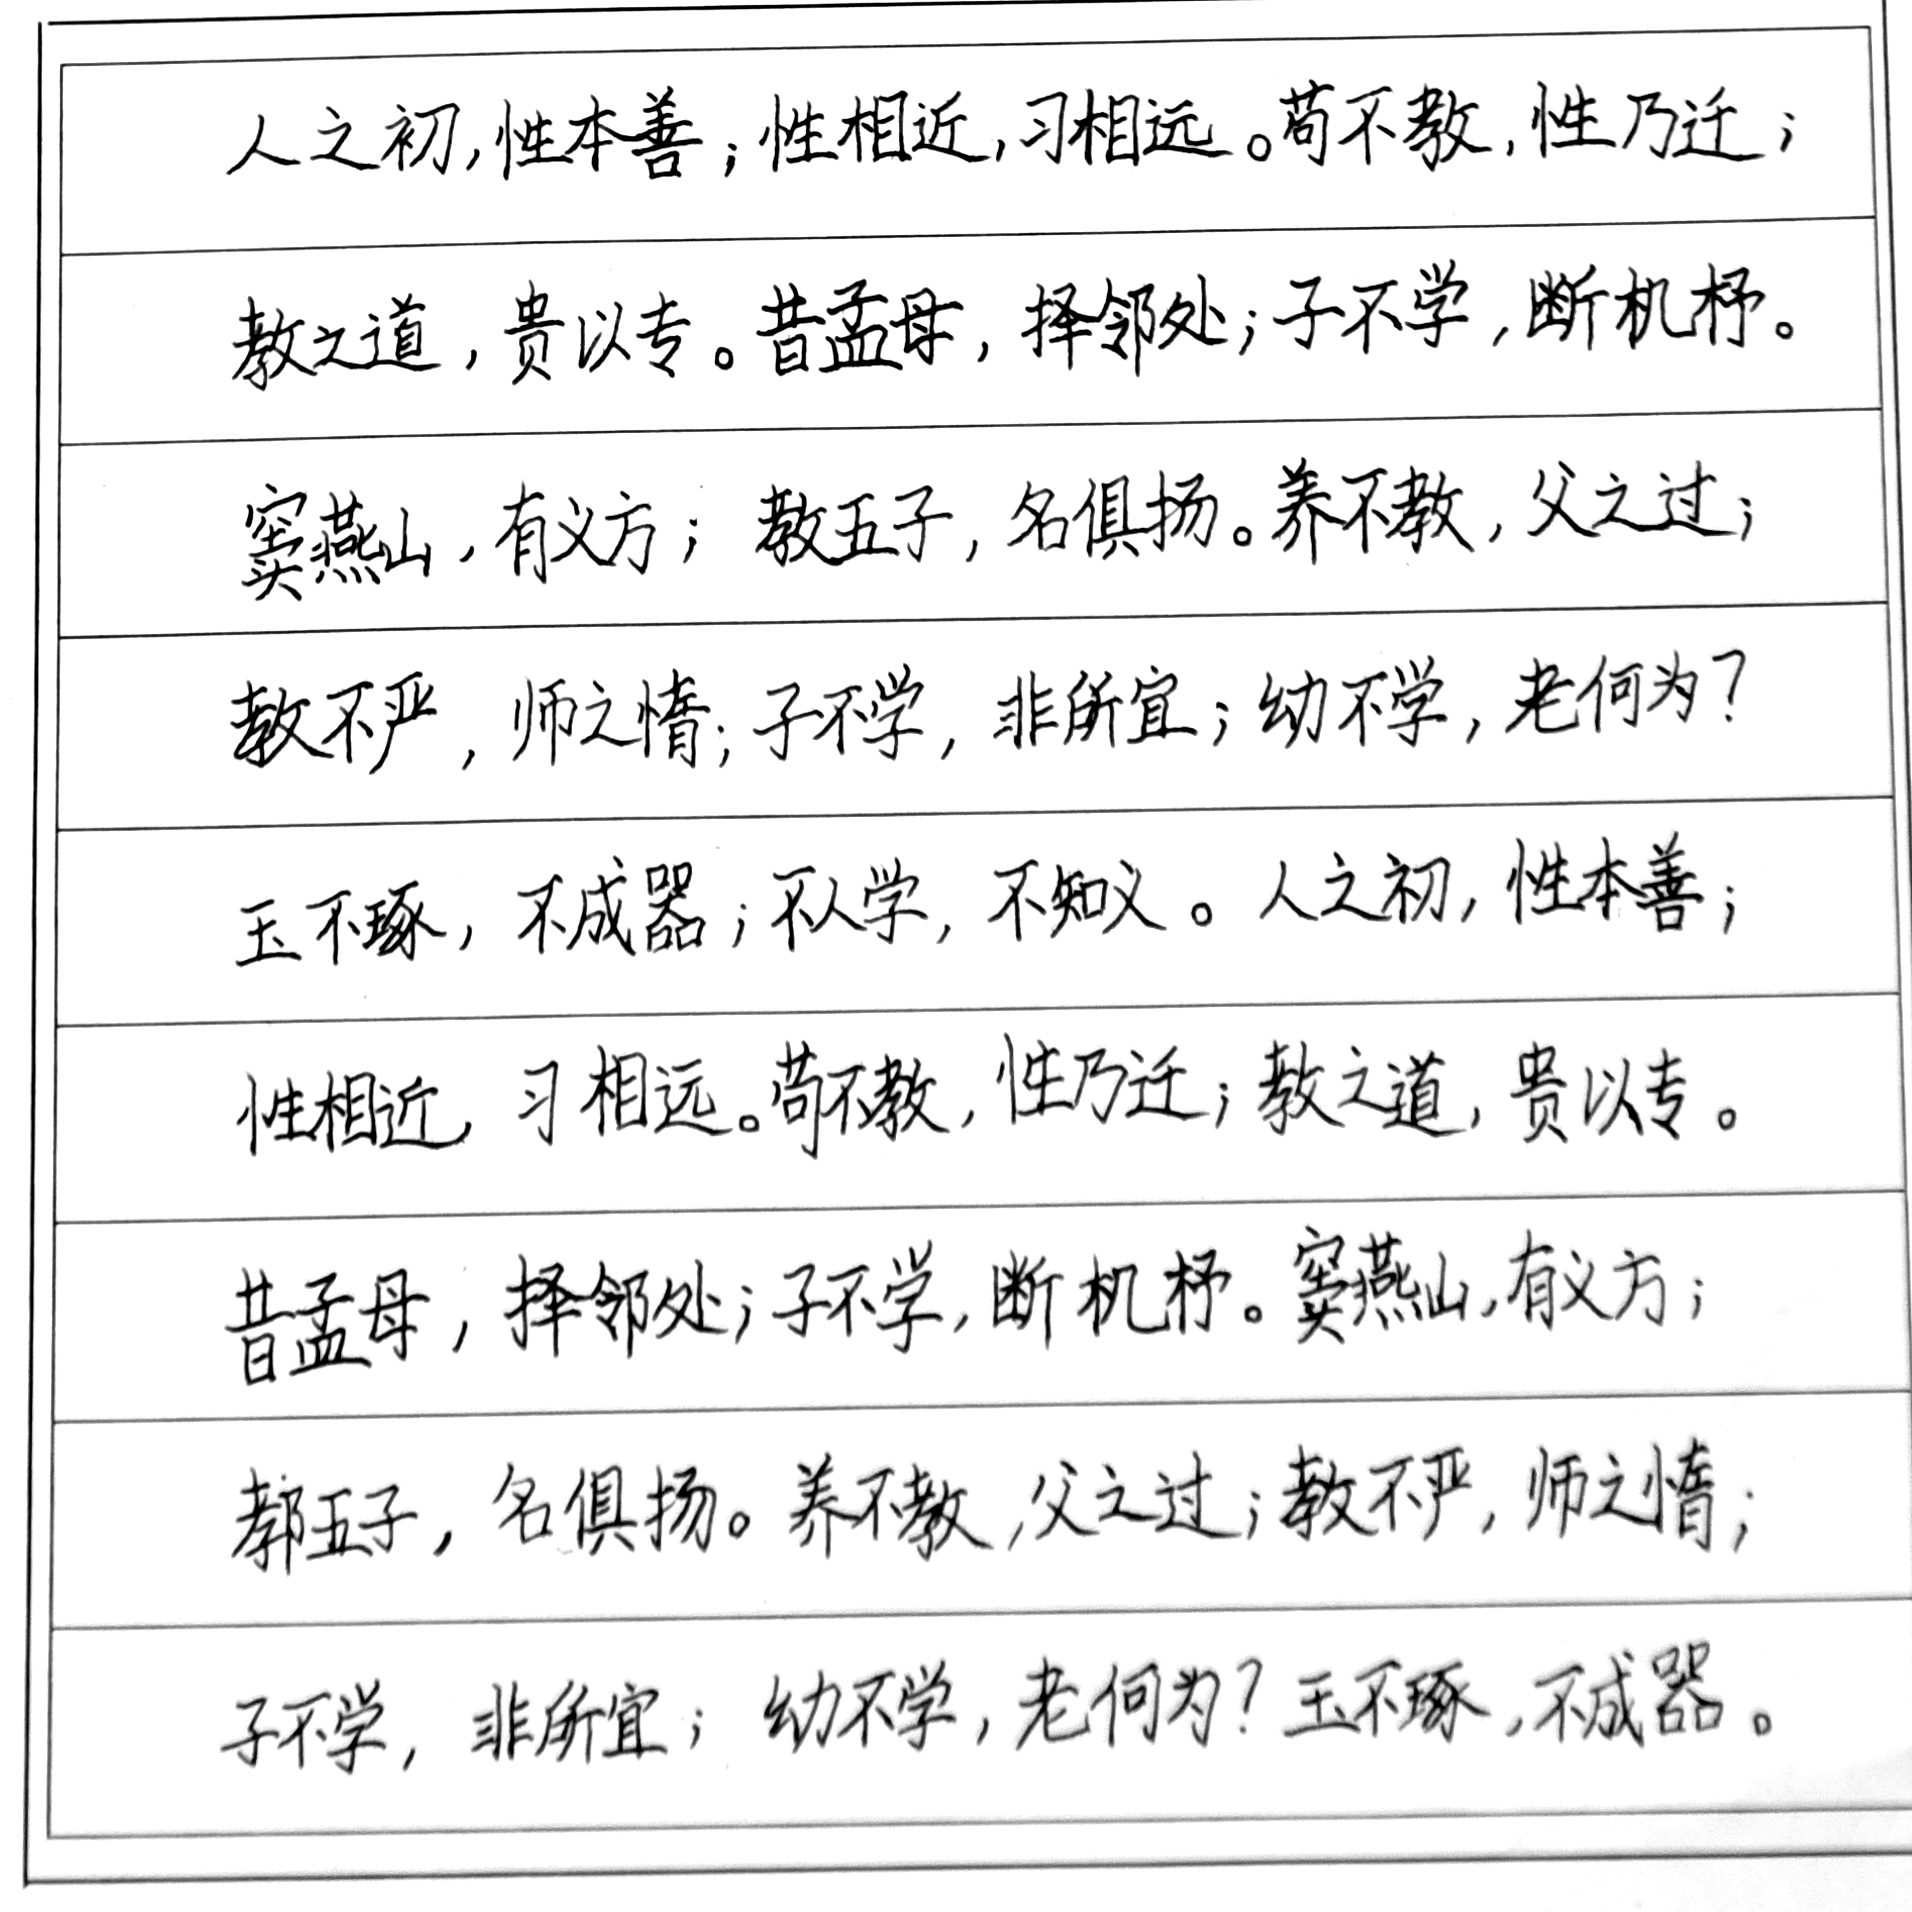 人之初,性本善;性相近,习相远。苟不教,性乃迁;
教之道,贵以专。昔孟母,择邻处;子不学,断机杼。
窦燕山,有义方;教五子,名俱扬。养不教,父之过;
教不严,师之惰;子不学,非所宜;幼不学,老何为?
玉不琢,不成器;不人学,不知义。人之初,性本善;
性相近,习相远。苟不教,性乃迁;教之道,贵以专。
昔孟母,择邻处;子不学,断机杼。窦燕山,有义方;
教五子,名俱扬。养不教,父之过;教不严,师之惰;
子不学,非所宜;幼不学,老何为?玉不琢,不成器。